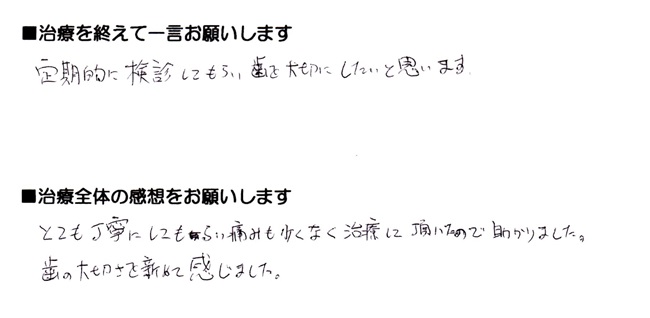 ■治療を終えて一言お願いします
定期的に検診してもらい歯を大切にしたいと思います。
■治療全体の感想をお願いします
とても丁寧にしてもらい痛みも少くなく治療して頂いたので助かりました。
歯の大切さを新めて感じました。